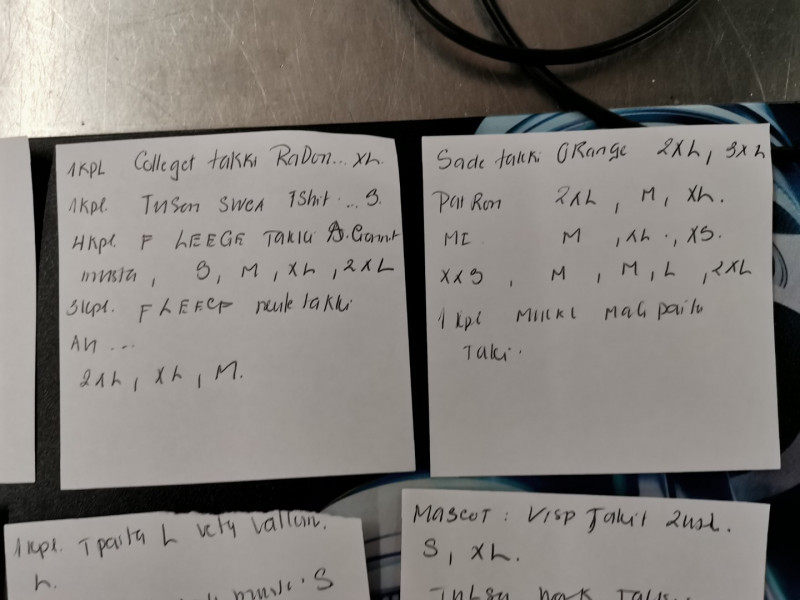 1KPL Colleget takki RaDon... XL.
1kpl. TuSon SWEA TShit... S.
4kpl. F LEEGE Takki
musta, S, M, XL, 2XL
3kpl. FLEECE neule takki
AH ...
2XL, XL, M.
Sade takki ORange 2XL, 3XL
Pat Ron 2XL, M, XL.
ME M, XL., XS.
XXS, M, M, L, 2XL
1 kpl paita
Taki.
1 kpl. Tpaita L
L.
S
MASCOT: Takit
S, XL.